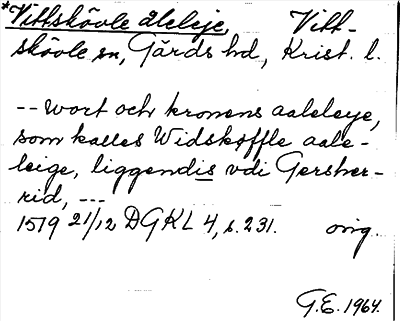 *Vittskövle åleleje, Vitt-
skövle sn, Gärds hd, Krist. l.
-- wort och kronens aaleleye,
som kalles Widskøffle aale-
leige, liggendis vdi Gersher-
rid, ---
1579 21/12 DGKL 4, s. 231. orig.
G.E. 1964.